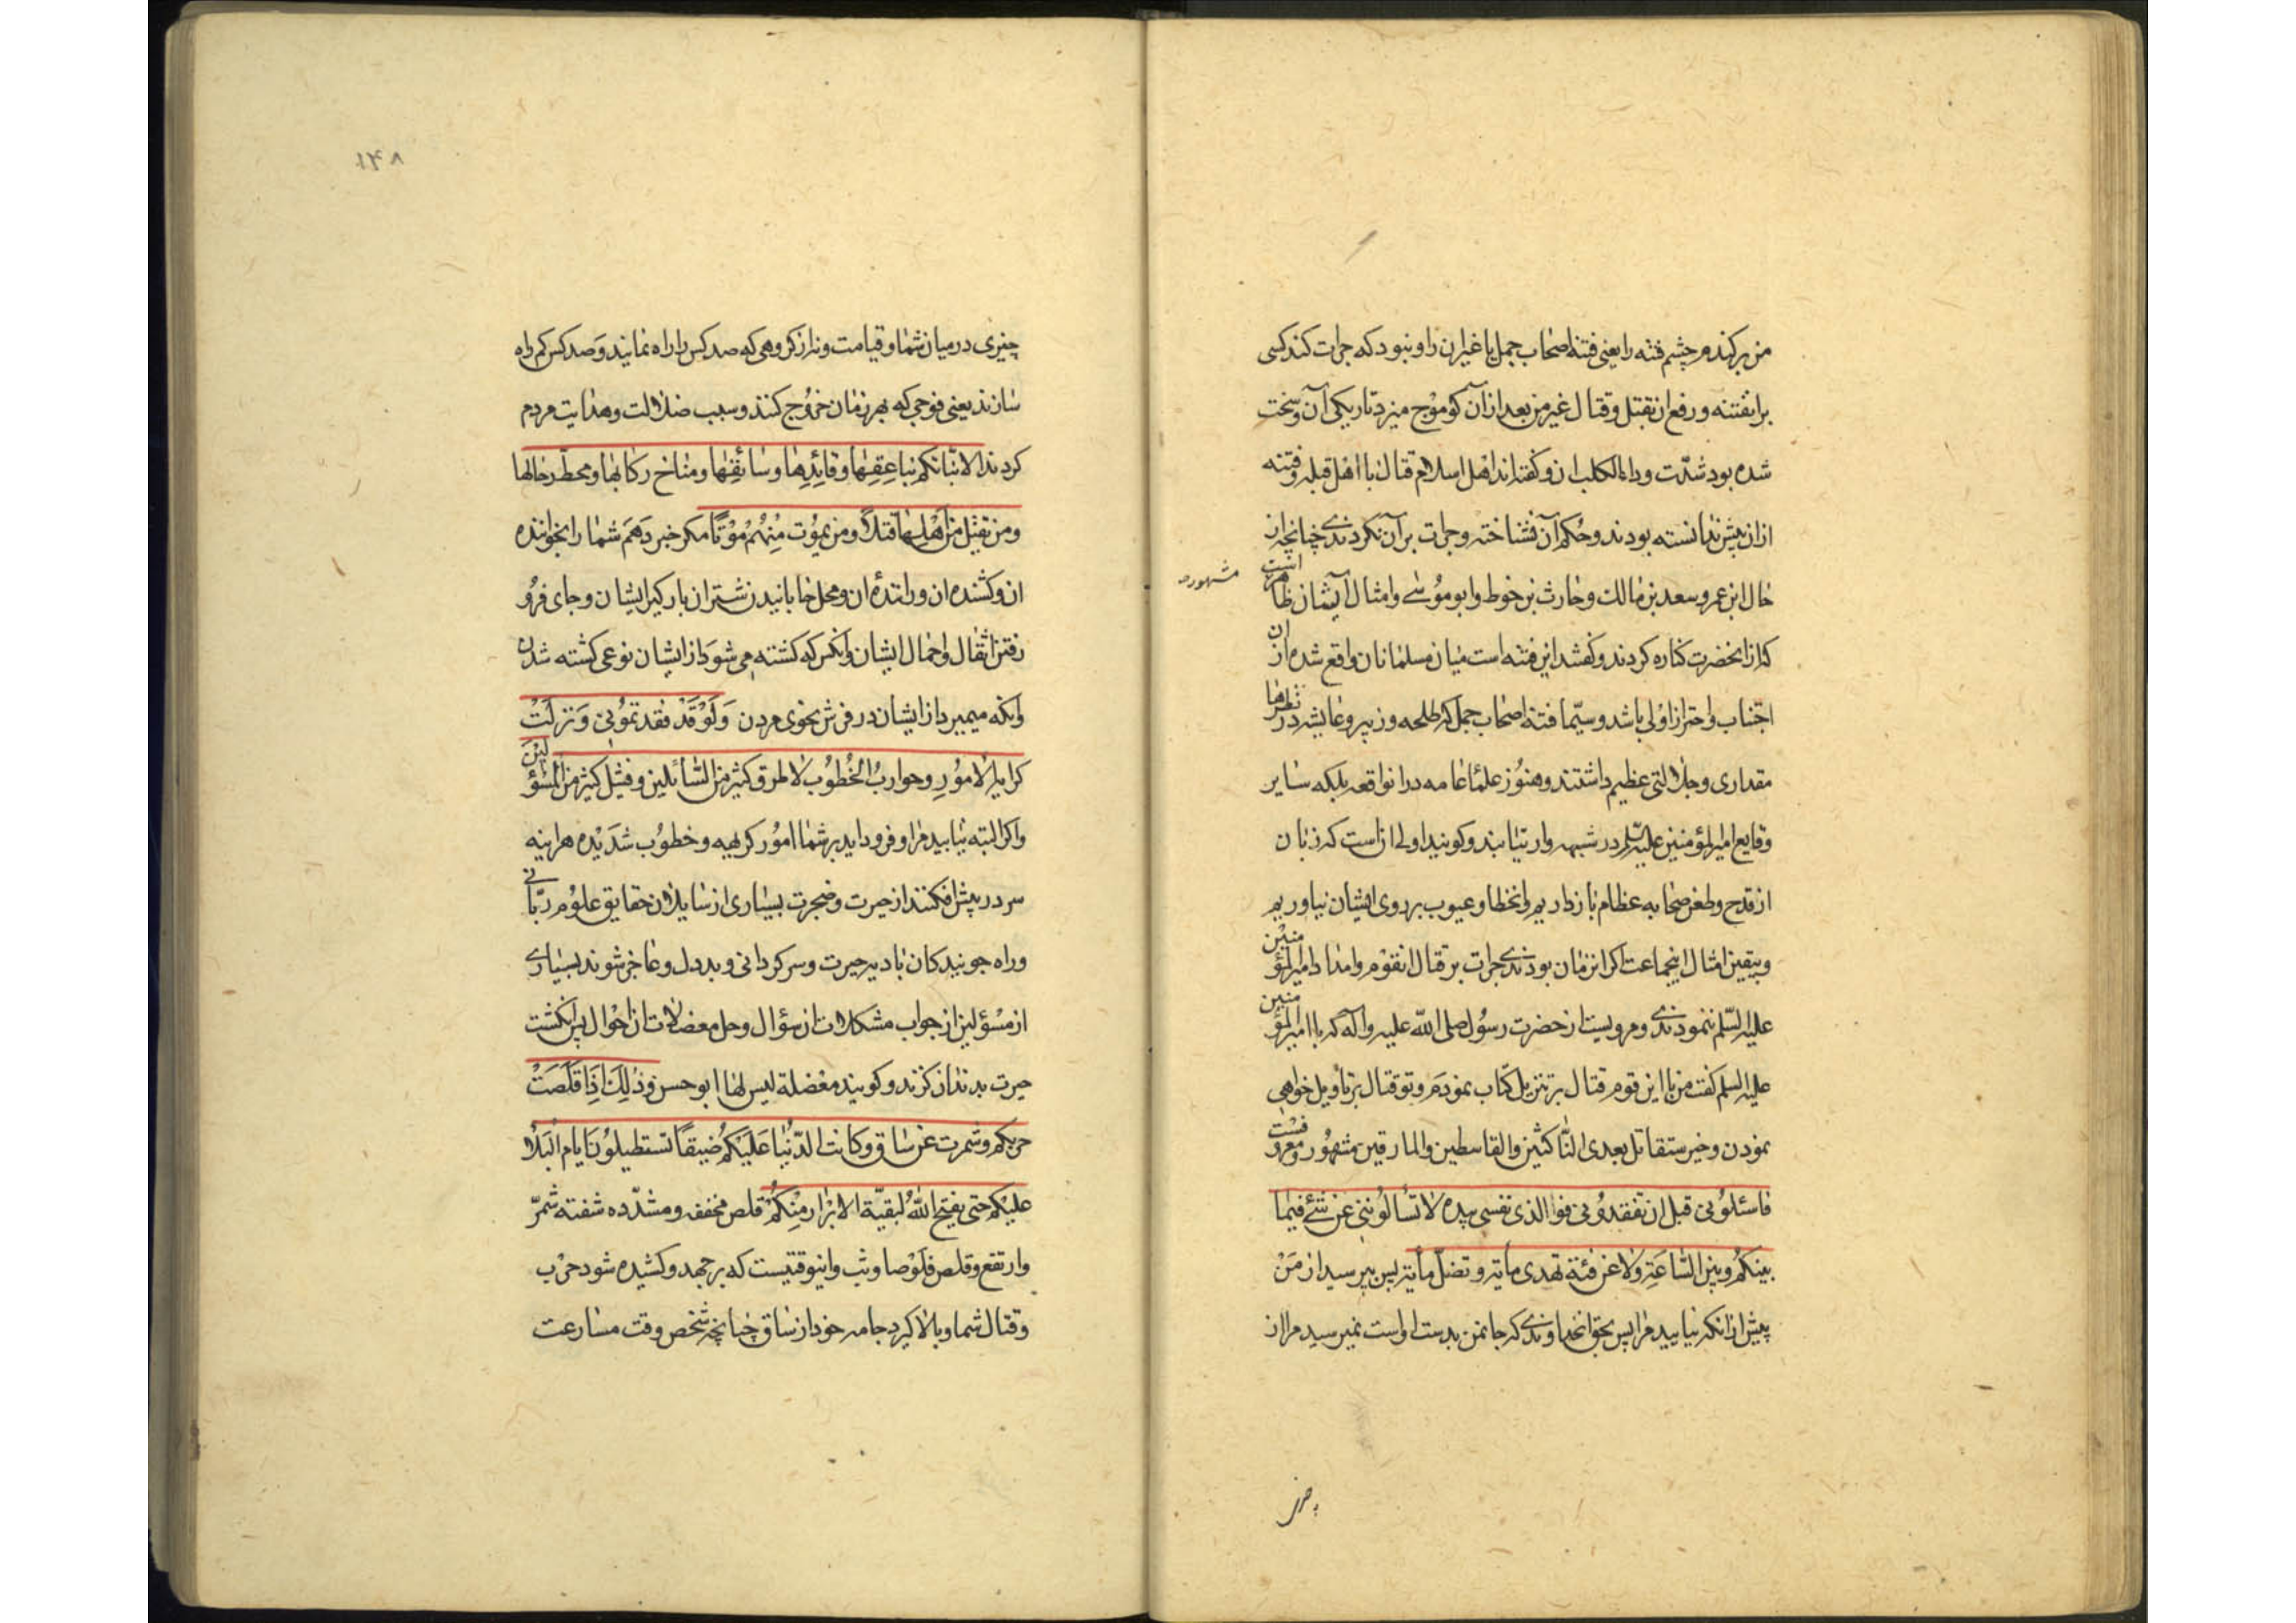 من برکندم چشم فتنه را یعنی فتنهٔ اصحاب جمل یا غیر ان را و نبود که جرات کند کسی
بر انفتنه و رفع ان بقتل و قتال غیر من بعد از آن که موج میزد تاریکی آن و سخت
شده بود شدّت و داء الکلب ان و کفته‌اند اهل اسلام قتال با اهل قبله و فتنه
ازان پیش ندانسته بودند و حکم آن نشناخته و جرات بر آن نکردندی چنانچه از
حال ابن عمر و سعد بن مالک و حارث بن حوط و ابو موُسی و امثال ایشان ظاهر است
مشهوره
که از انحضرت کناره کردند و کفتند این فتنه است میان مسلمانان واقع شده از ان
اجتناب و احتراز اوُلی باشد و سیّما فتنه اصحاب جمل که طلحه و زبیر و عایشه در نظرها
مقداری و جلالتی عظیم داشتند و هنوُز علمٔا عامه در انواقعه بلکه سایر
وقایع امیر المؤمنین علیه السّلم در شبهه وارتیابند و کویند اولی انست که زبان
از قدح و طعن صحابه عظام باز داریم و انخطا و عیوب بر روی ایشان نیاوریم
و بیقین امثال اینجماعت اکر انزمان بودندی جرات بر قتال انقوْم و امداد امیر المؤمنین
علیه السّلم ننمودندی و مرویست از حضرت رسوُل صلی الله علیه و اله که با امیر المؤمنین
علیه السلم کفت من با این قوم قتال بر تنزیل کتاب نمودم و تو قتال بر تأویل خواهی
نمودن و خبر ستقاتل بعدی النّاکثین والقاسطین والمارقین مشهوُر و معروفست
فاسئلوُنی قبل ان تفقدوُنی فوا الذی نفسی بیده لا تسالُوننی عن شئ فیما
بینکُم وبین السّاعَةِ ولا عن فئة تهدی مأیة و تضلّ مأیة پس بپرسید از مَنْ
پیش ازانکه نیابید مرا پس بحق انخداوندی که جانمن بدست اواست نمیپرسید مرا از
چیزی در میان شما و قیامت و نه از کروهی که صد کس را راه نمایند و صد کس کم راه
سازند یعنی فوجی که بهر زمان خروُج کنند و سبب ضلالت و هدایت مردم
کردند الا نبّاتکم بناعِقِها وقائِدِها وسائقِها ومناخ رکابها ومحطّ رحالها
ومن یقتل من اَهْلِها قتلاً ومن یموُت مِنْهُمْ موْتًا مکر خبر دَهَم شما را بخواننده
ان و کشنده ان و رانندهٔ ان و محل خابانیدن شتران بارکیر ایشان و جای فروُ
رفتن اثقال و احمال ایشان و انکس که کشته می شوَد از ایشان نوعی کشته شدن
و انکه میمیرد از ایشان در فرش بخوی مردن وَلَوْ قَدْ فقدتموُنی وَنزلَتْ
کرایه الاموُرِ وحوازبُ الخُطوُب لاطرق کثیر من السّائلین وفشل کثیر من المسْؤلیْنَ
و اکر البته نیابید مرا و فرود اید بر شما اموُر کریهه و خطوُب شدَیْده هر اینه
سر در پیش افکنند از حیرت و ضجرت بسیاری از سایلان حقایق علوُم ربّانی
و راه جویندکان بادیه حیرت و سرکردانی و بددل و عاجز شوند بسیاری
از مسْؤلین از جواب مشکلات از سؤال و حل معضلات از احوْال پس انکشت
حیرت بدندان کزند و کویند معْضلة لیس لها ابو حسن وذٰلِکَ اِذَا قَلَّصَتْ
حربکم وشمرت عن ساق وکانت الدّنْیا عَلَیْکُم ضیقًا تستطیلوُن ایام البَلاٰ
علیْکم حتّی یفتح اللهُ لبقیّة الابْرار مِنْکُمْ قلص مخففه و مشدّده شفته شمّر
وارتفع و قلص قلوْصا وثب و اینوقتیست که برجهد و کشیده شود حرْب
و قتال شما و بالا کیرد جامه خود از ساق چنانچه شخص وقت مسارعت
۱۴۸